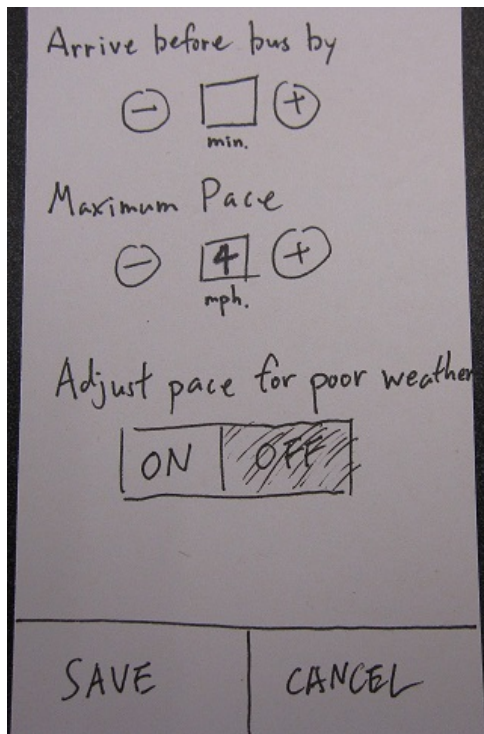 Arrive before bus by
− +
min.
Maximum Pace
− 4 +
mph.
Adjust pace for poor weather
ON OFF
SAVE CANCEL